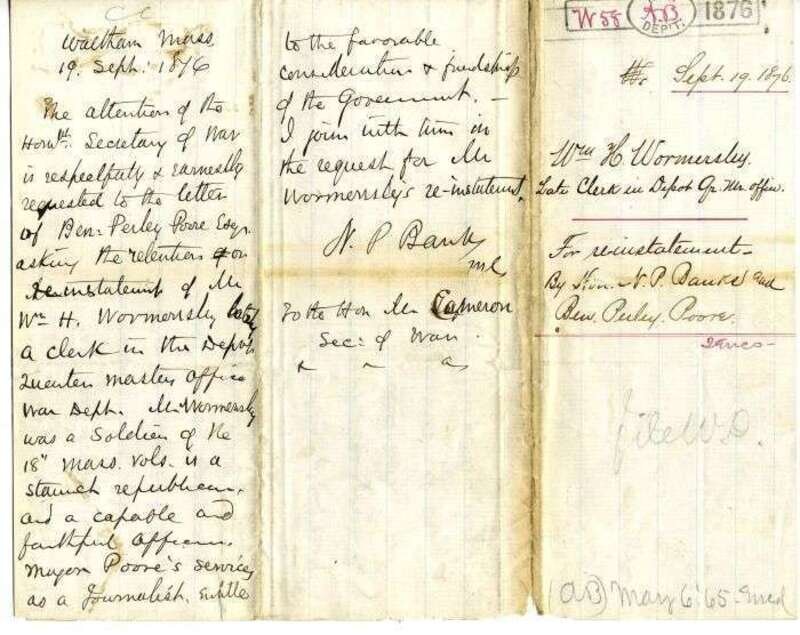 Waltham Mass.
19. Sept. 1876
The attention of the
Honble. Secretary of War
is respectfully & earnestly
requested to the letter
of Ben: Perley Poore Esqr.
asking the retention or
re instatement of Mr
Wm H. Wormersley lately
a clerk in the Depot
Quarter masters Office
War Dept. Mr Wormersley
was a Soldier of the
18" Mass. Vols. is a
staunch republican,
and a capable and
faithful Officer.
Major Poore's services
as a Journalist, entitle
to the favorable
consideration & friendship
of the Government. —
I join with him in
the request for Mr
Wormersleys re-instatement.
N. P. Banks
M C
To the Hon Mr Cameron
Sec: of War.
W 58 DEPT. 1876
Sept. 19. 1876.
Wm H. Wormersley.
Late Clerk in Depot Qr. Mr. office.
For re-instatement-
By Hon. N. P. Banks and
Ben. Perley. Poore.
File W.D.